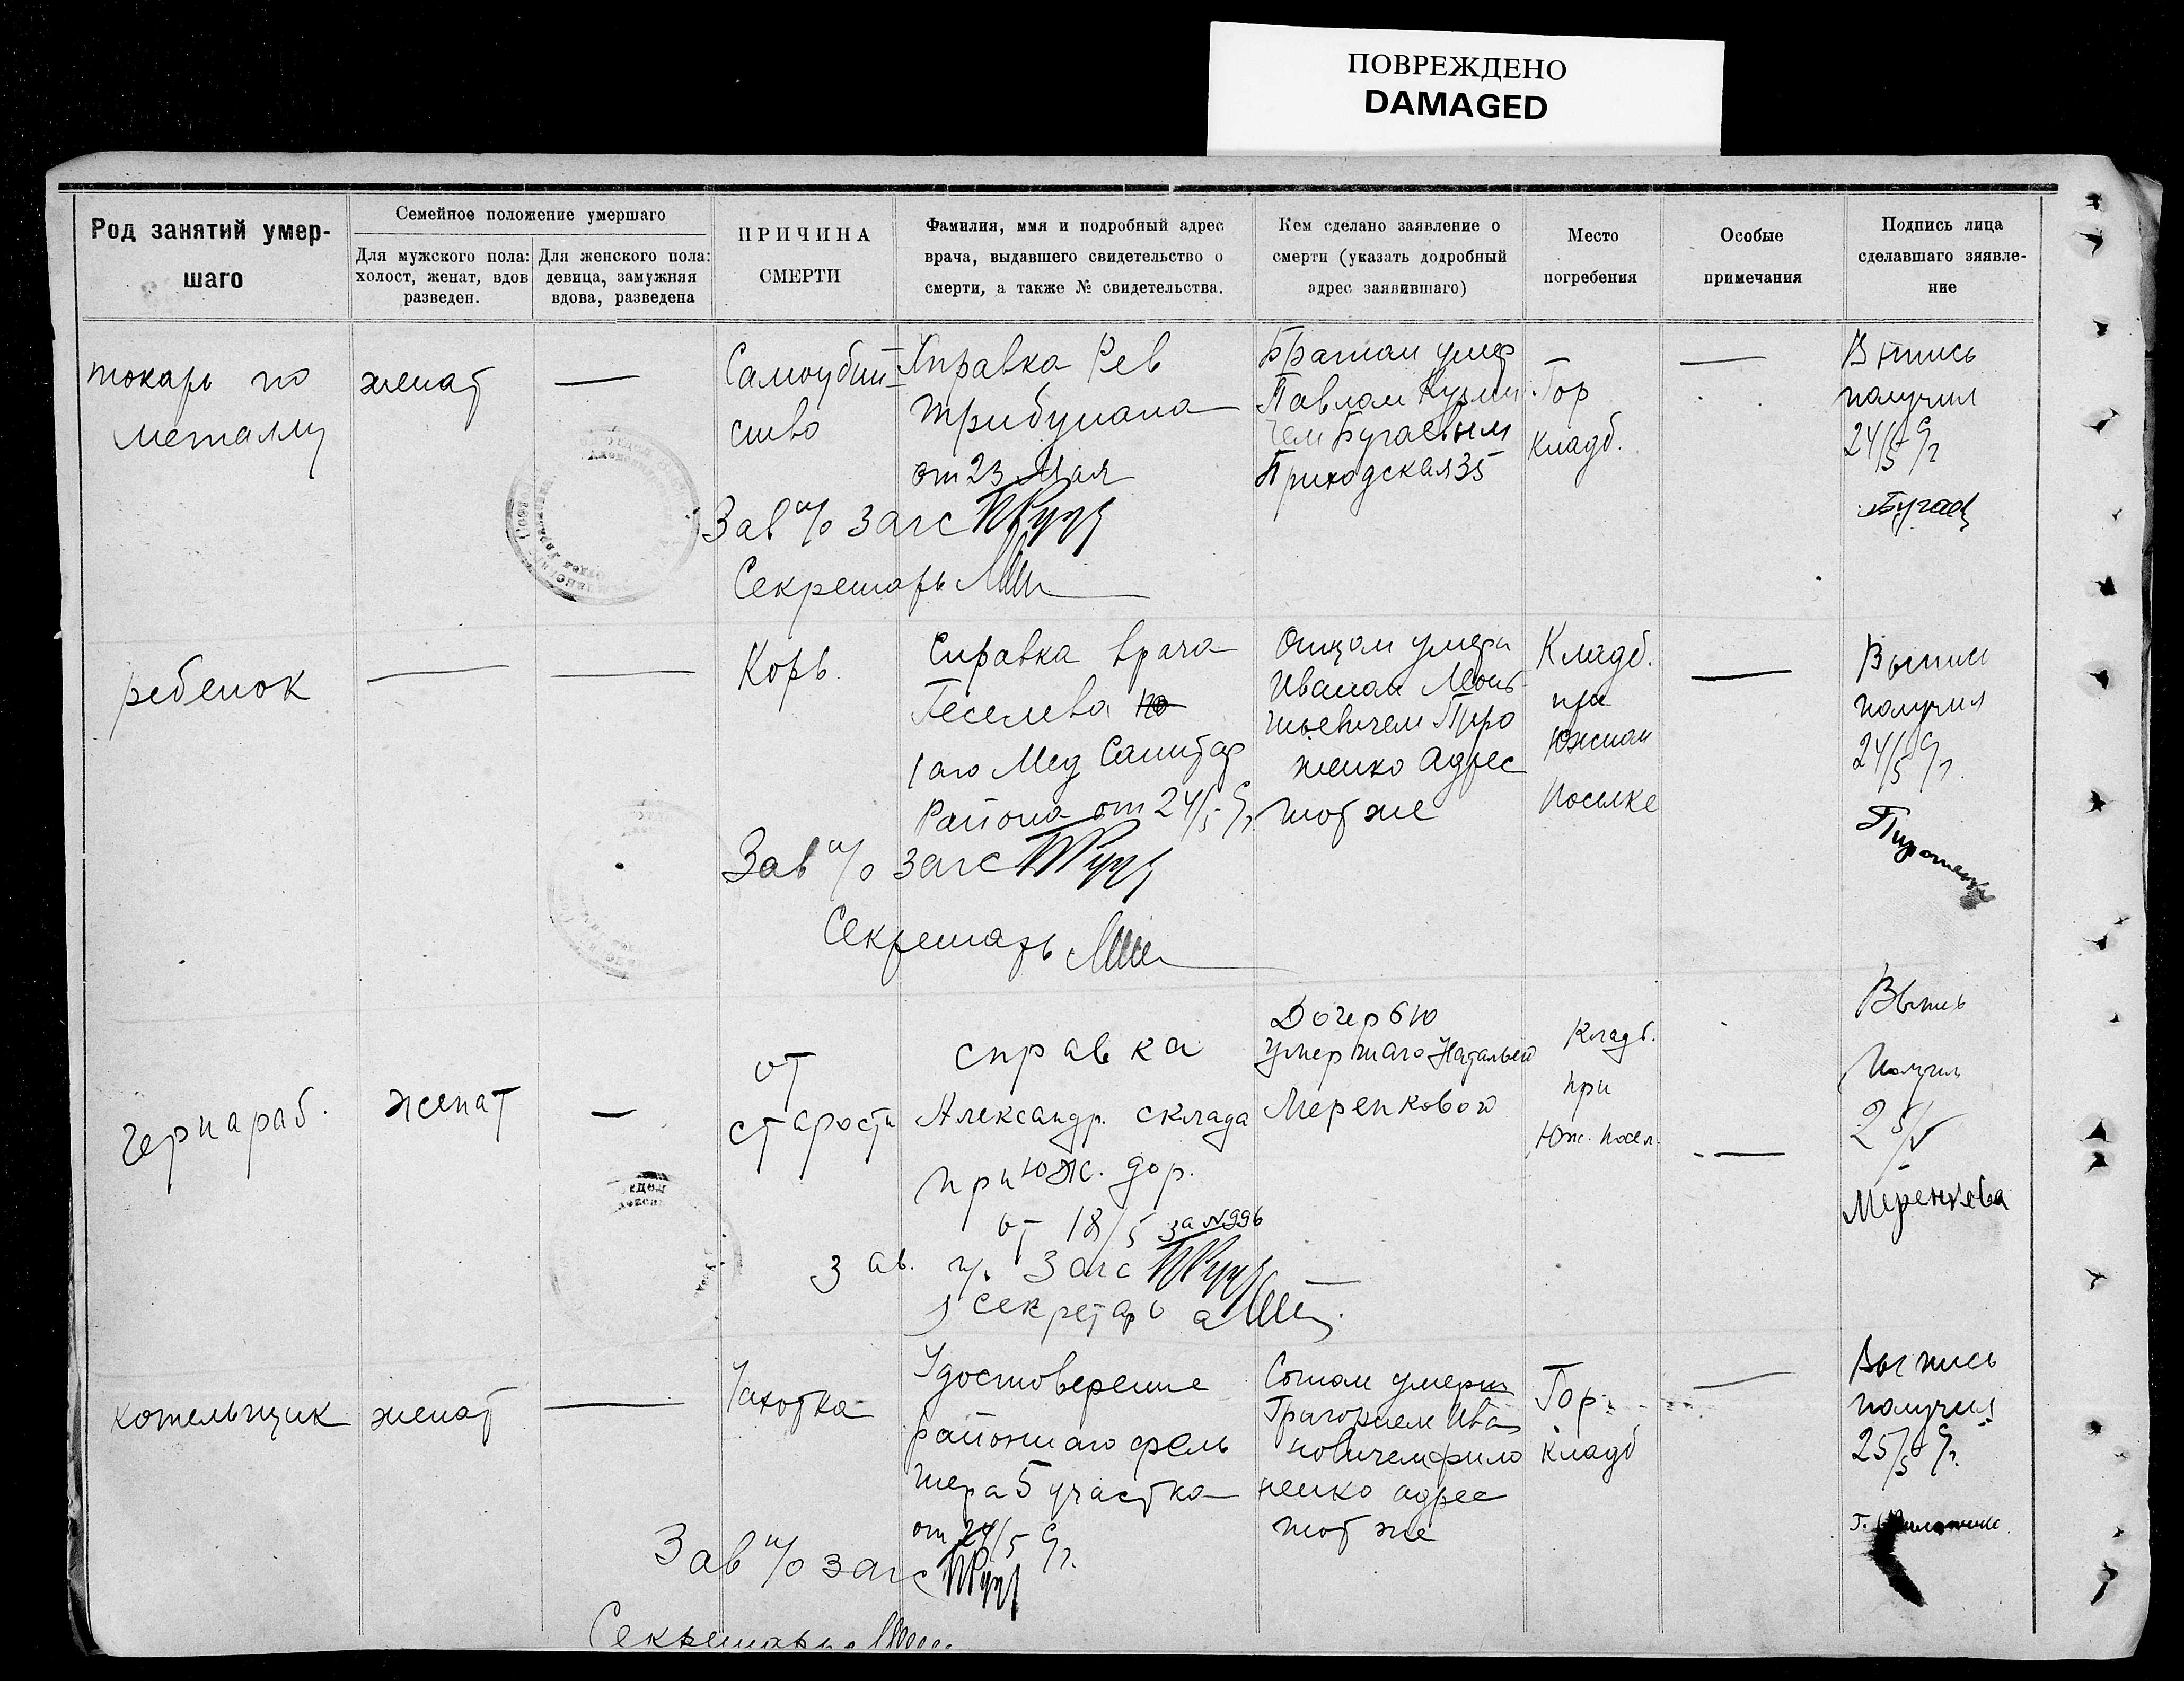 ПОВРЕЖДЕНО
DAMAGED
Род занятий умер-
шаго
Семейное положение умершаго
Для мужского пола:
холост, женат, вдов
разведен.
Для женского пола:
девица, замужняя
вдова, разведена
ПРИЧИНА
СМЕРТИ
Фамилия, ммя и подробный адрес
врача, выдавшего свидетельство о
смерти, а также № свидетельства.
Кем сделано заявление о
смерти (указать додробный
адрес заявившаго)
Место
погребения
Особые
примечания
Подпись лица
сделавшаго зяявле-
ние
токарь по
металлу
женат
—
Самоубий-
ство
Справка Рев
трибунала
от 23 Мая
Братом умер
Павлом Кузми
чем Бугаевым
Приходская 35
Гор
кладб.
—
получил
24/5
Бугаев
Зав п/о загс
Секретарь
ребенок
—
—
Корь
Справка врача
Геселева
1 аго Мед Санитар
Района от 24/5
Отцом умерш
Иваном
Адрес
тот же
Кладб.
при
Южном
поселке
—
Выпись
получил
24/5
Зав п/о загс
Секретарь
Чернараб.
женат
—
от
старости
справка
Александр. склада
при Юж. дор.
от 18/5 за №996
Дочерью
умершаго Натальей
Меренковой
Кладб.
при
Юж. посел.
—
Выпись
Получил
25/V
Меренкова
Зав. п/о Загс
Секретарь
котельщик
женат
—
Чахотка
Удостоверение
районнаго фель
шера 5 участка
от 24/5
Сыном умерш
Григорием Ива
новичем Фило
ненко адрес
тот же
Гор.
кладб
—
Выпись
получил
25/5
Г. Филоненко
Зав п/о загс
Секретарь